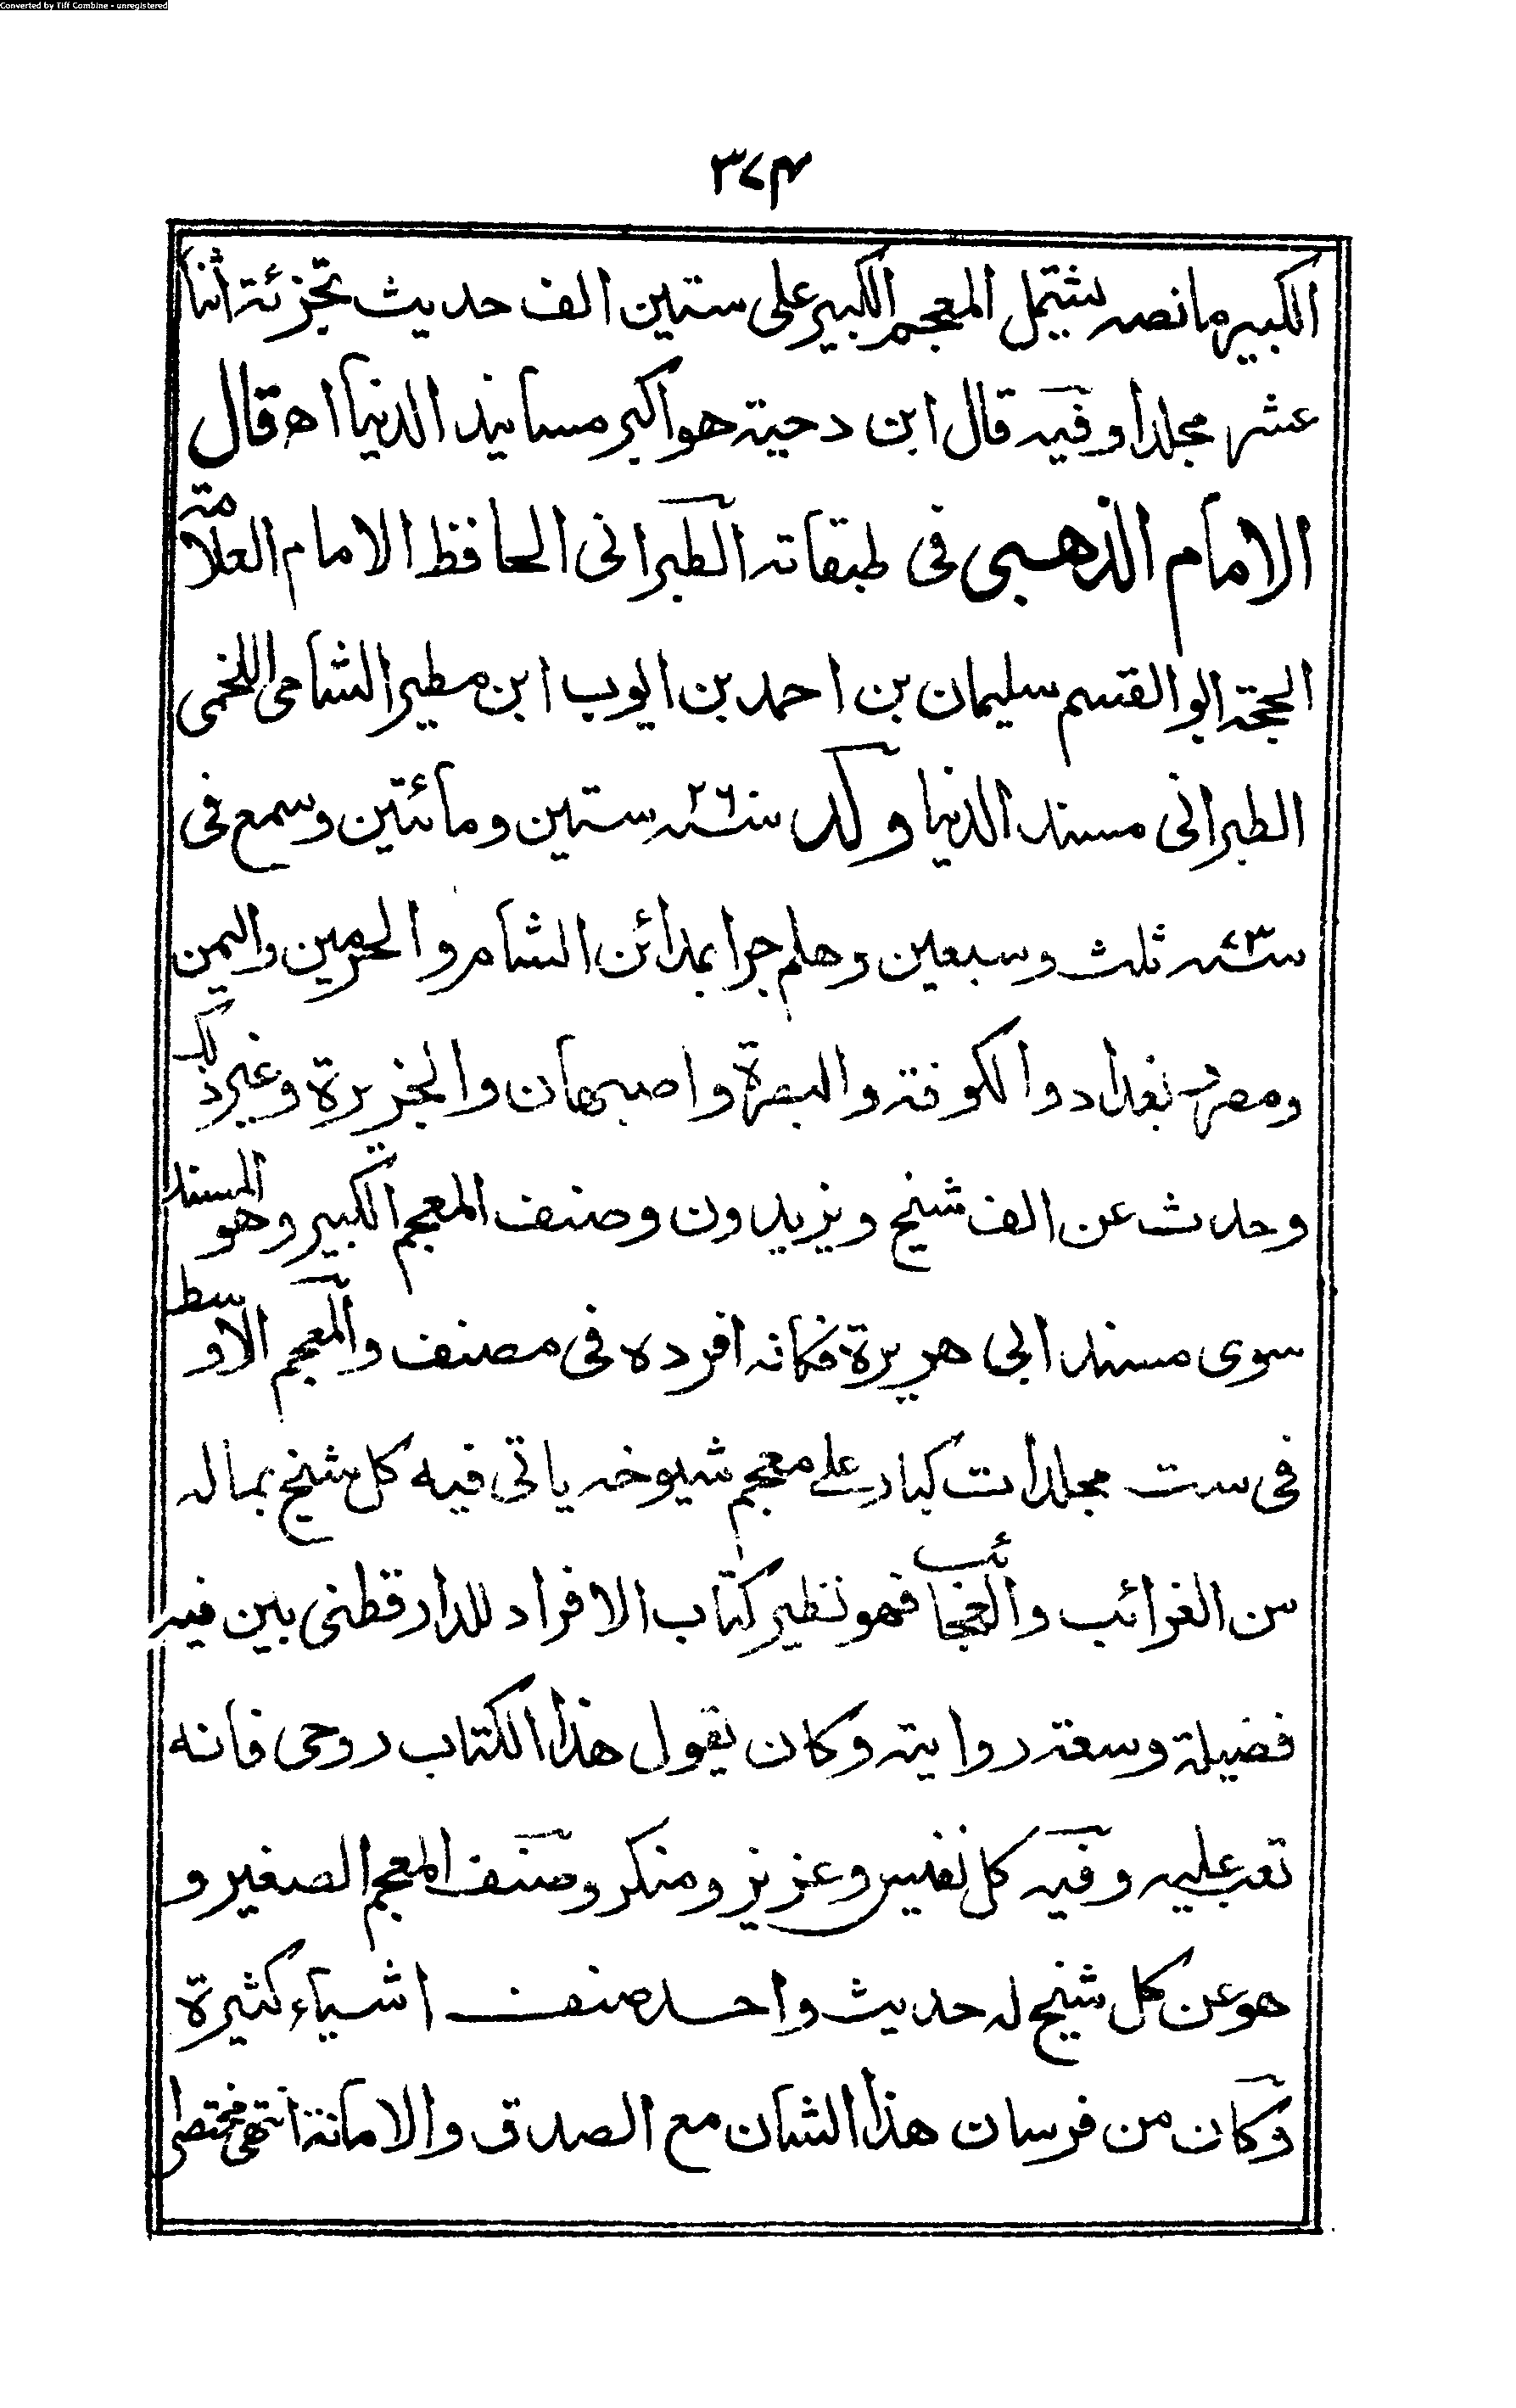 Converted by Tiff Combine - unregistered
٣٧٤
الكبير مانصه يشتمل المعجم الكبير على ستين الف حديث تجزئة اثنا
عشر مجلدا وفيه قال ابن دحية هو اكبر مسانيد الدنيا اه قال
الامام الذهبى فى طبقاته الطبرانى الحافظ الامام العلامة
الحجة ابو القسم سليمان بن احمد بن ايوب ابن مطير الشامى اللخمى
الطبرانى مسند الدنيا ولد سنة ٢٦٠ ستين ومائتين وسمع فى
سنة ٧٣ ثلث وسبعين وهلم جرا بمدائن الشام والحرمين واليمن
ومصر وبغداد والكوفة والبصرة واصبهان والجزيرة وغير ذلك
وحدث عن الف شيخ ويزيدون وصنف المعجم الكبير وهو المسند
سوى مسند ابى هريرة فكانه افرده فى مصنف والمعجم الاوسط
فى ست مجلدات كبار على معجم شيوخه ياتى فيه كل شيخ بماله
من الغرائب والعجائب فهو نظير كتاب الافراد للدارقطنى بين فيه
فضيلة وسعة روايته وكان يقول هذا الكتاب روحى فانه
تعب عليه وفيه كل نفيس وعزيز ومنكر وصنف المعجم الصغير و
هو عن كل شيخ له حديث واحد صنف اشياء كثيرة
وكان من فرسان هذا الشان مع الصدق والامانة انتهى مختصرا